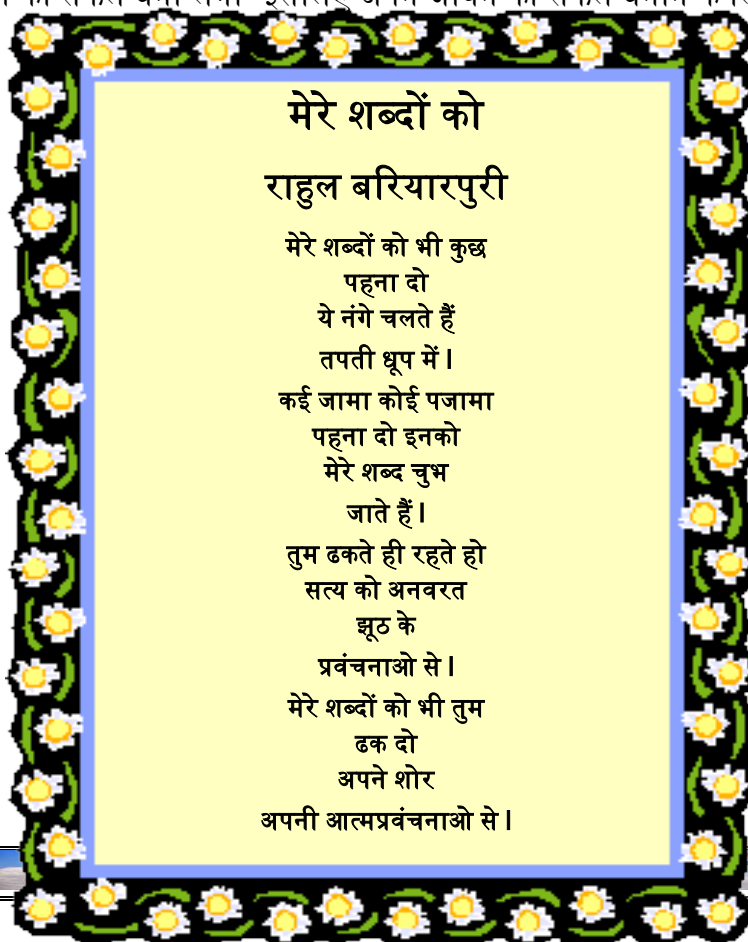 मेरे शब्दों को
राहुल बरियारपुरी
मेरे शब्दों को भी कुछ
पहना दो
ये नंगे चलते हैं
तपती धूप में।
कई जामा कोई पजामा
पहना दो इनको
मेरे शब्द चुभ
जाते हैं।
तुम ढकते ही रहते हो
सत्य को अनवरत
झूठ के
प्रवंचनाओ से।
मेरे शब्दों को भी तुम
ढक दो
अपने शोर
अपनी आत्मप्रवंचनाओ से।